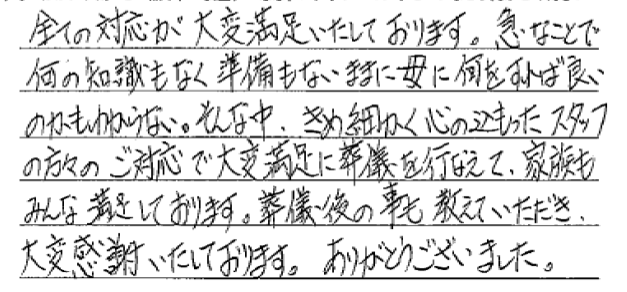 全ての対応が大変満足いたしております。急なことで
何の知識もなく準備もないままに母に何をすれば良い
のかもわからない。そんな中、きめ細かく心の込もったスタッフ
の方々のご対応で大変満足に葬儀を行なえて、家族も
みんな満足しております。葬儀後の事も教えていただき、
大変感謝いたしております。ありがとうございました。